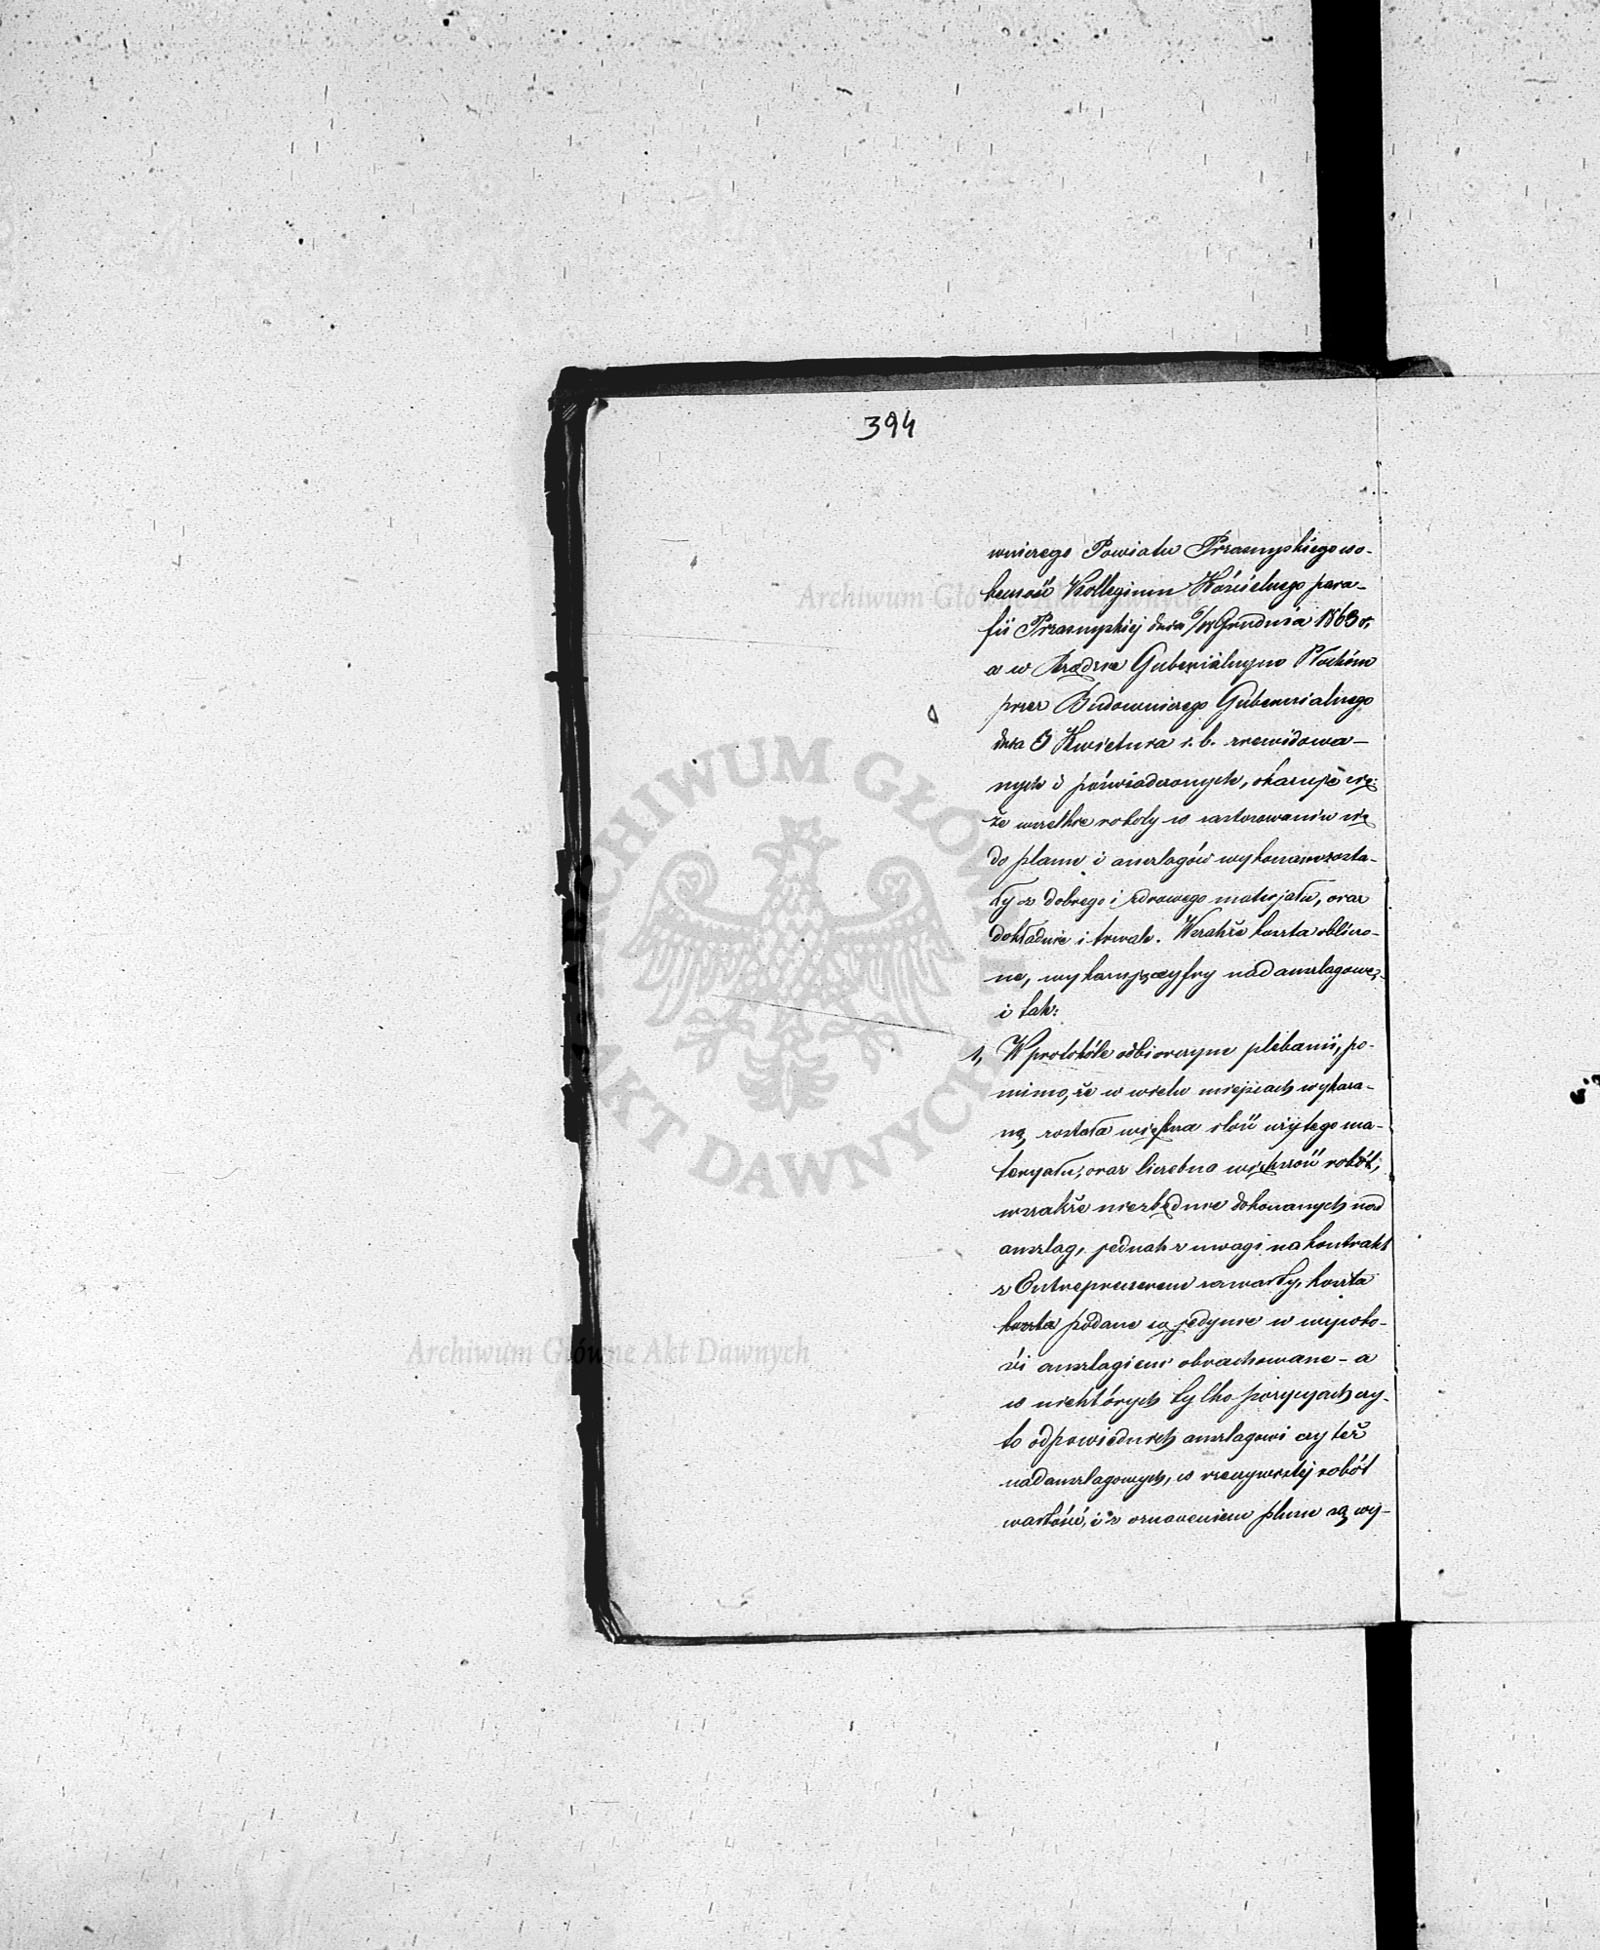 394
wniczego Powiatu Przasnyskiego w o-
becność Kollegium Kościelnego para-
fii Przasnyskiej dnia Grudnia 1863 r,
a w Rządzie Gubernialnym Płockim
przez Budowniczego Gubernialnego
dnia Kwietnia r. b. zrewidowa-
nych i poświadczonych, okazuje się:
że wszelkie roboty w zastosowaniu się
do planu i anszlagów wykonane zosta-
ły z dobrego i zdrowego materjału, oraz
dokładnie i trwale. Wszakże koszta oblico-
ne, wykazują cyfry nadanszlagowe,
i tak:
1, W protokóle odbiorczym plebanii, po-
mimo, że w wielu miejscach wykaza-
ną została większa ilość użytego ma-
teryału, oraz liczebna większość robót,
wszakże niezbędnie dokonanych nad
anszlag, jednak z uwagi na kontrakt
z Entreprenerem zawarty, koszta
koszta podane są jedynie w wysoko-
ści anszlagiem obrachowane - a
w niektórych tylko pozycyach czy-
to odpowiednich anszlagowi czy też
nadanszlagowych, w rzeczywistej robót
wartości, i z oznaczeniem plune są wy-
Archiwum Główne Akt Dawnych
ARCHIWUM GŁÓWNE AKT DAWNYCH
Archiwum Główne Akt Dawnych